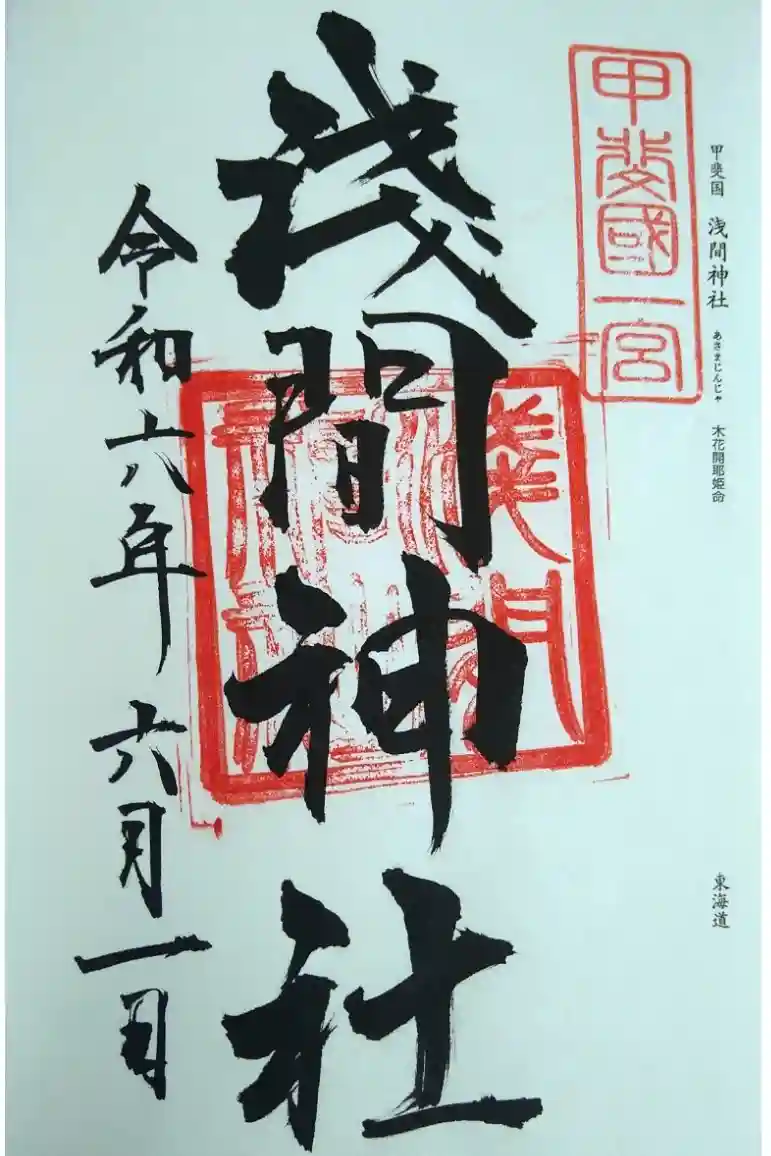 甲斐国 浅間神社 あさまじんじゃ 木花開耶姫命 東海道
甲斐國一宮
浅間神社
浅間神社
令和六年 六月一日